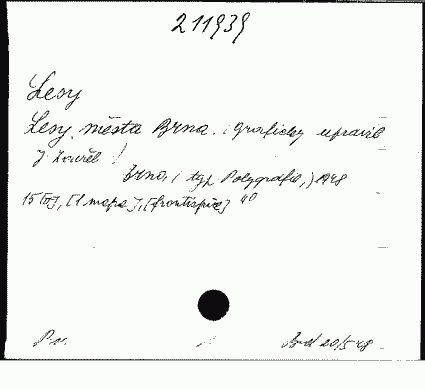 211939
Lesy
Lesy města Brna. (Graficky upravil
J.
Brno, (typ. Polygrafia,) 1948
15 [1 mapa], [frontispice] 4°
P.v. 20/5 48